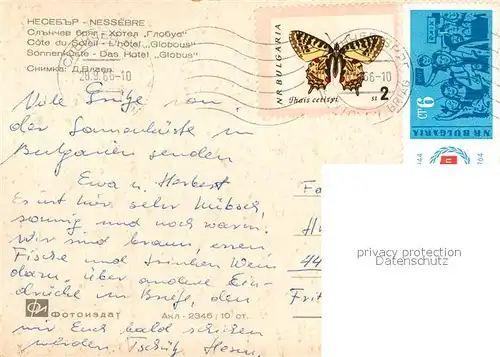 НЕСЕБЪР - NESSÈBRE
Слънчев бряг - Хотел „Глобус"
Côte du Soleil - L'hôtel „Globus"
Sonnenküste - Das Hotel „Globus"
Снимка: Д. Влаев
28.9.66-10
66-10
N R BULGARIA
Thais cerisyi
ST 2
N R BULGARIA
6 СТ
Viele Grüße von
der Sonnenküste in
Bulgarien senden
Ewa u. Herbert
Es ist hier sehr hübsch,
sonnig und noch warm.
Wir sind braun, essen
Fische und trinken Wein
dazu, über andere Ein-
drücke im Briefe, den
wir Euch bald schicken
werden. Tschüß
Fa
44
Frit
privacy protection
Datenschutz
ФИ
Фотоиздат
Акл - 2346 / 10 ст.